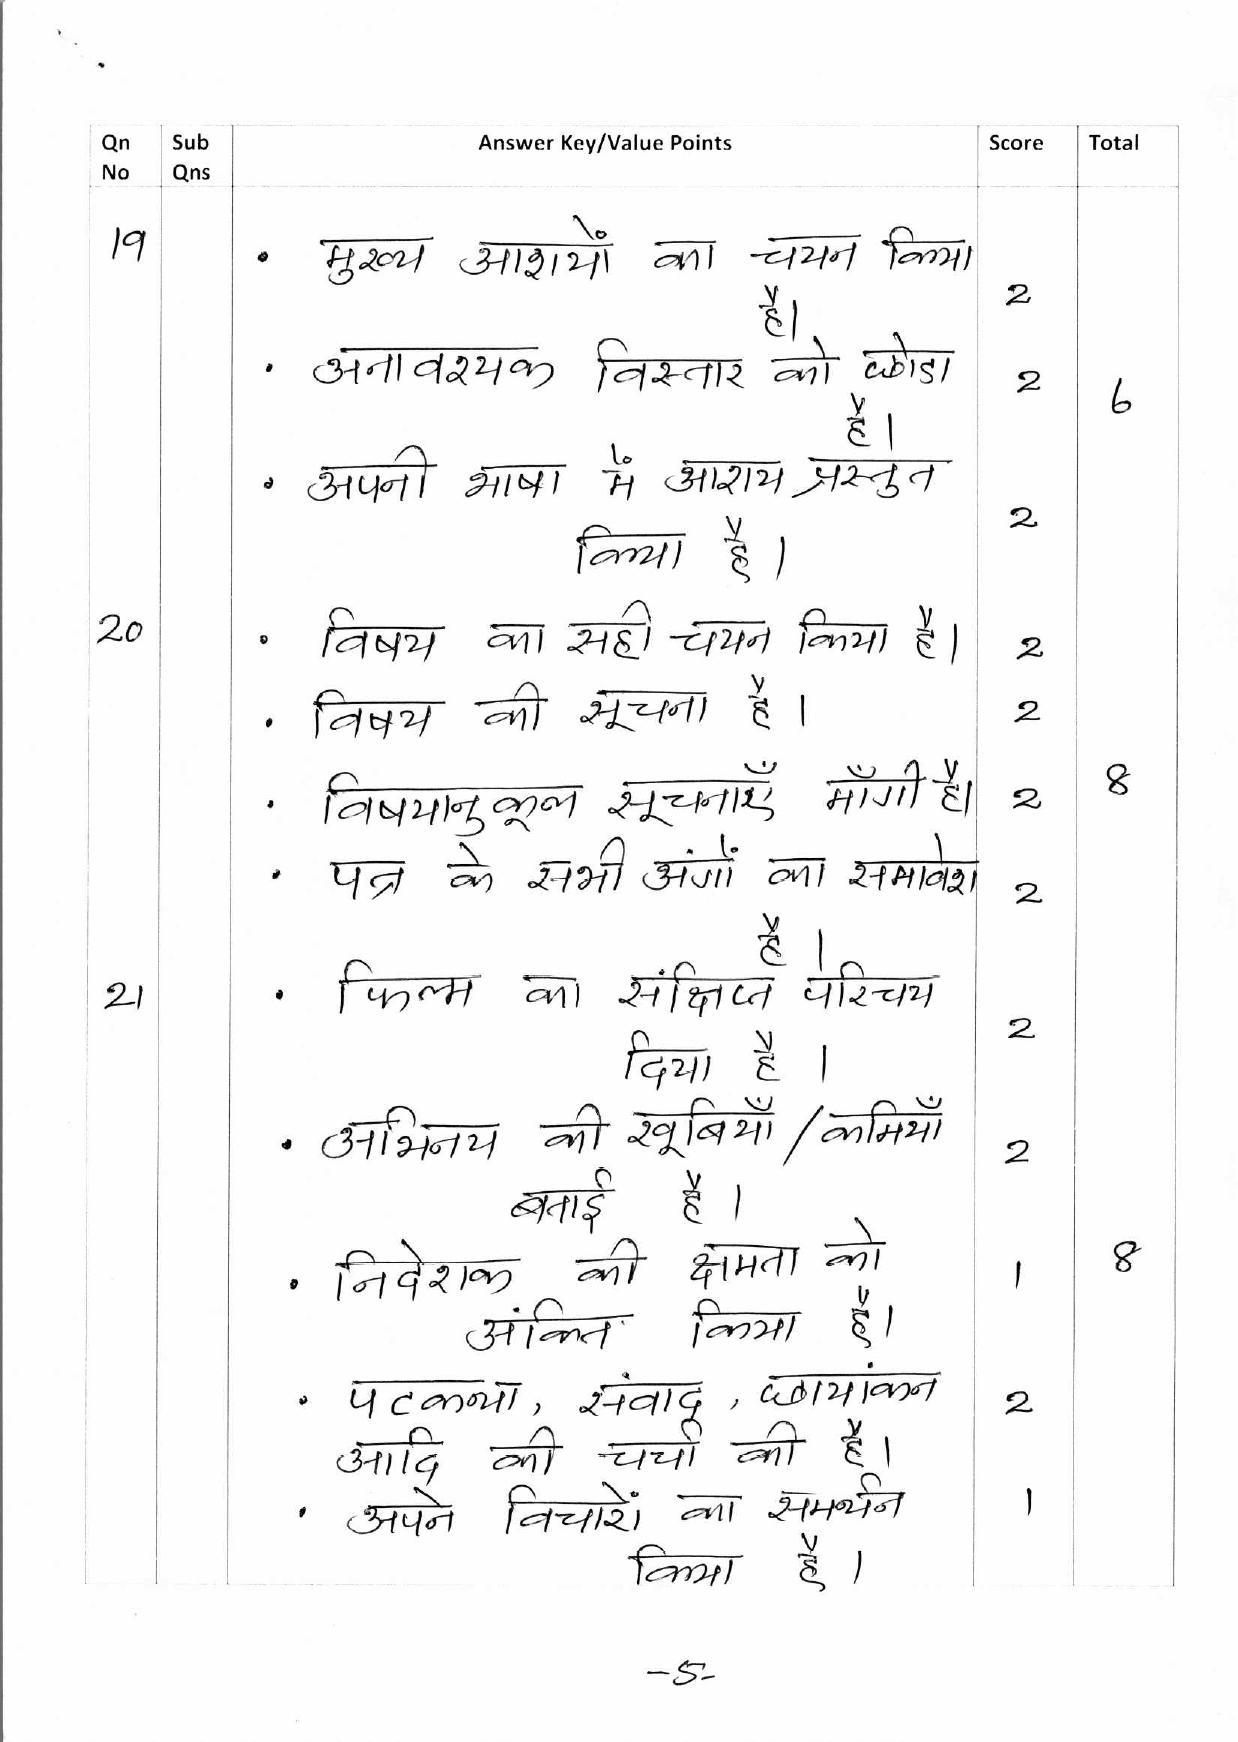 Qn No Sub Qns Answer Key/Value Points Score Total
19 • मुख्य आशयों का चयन किया
है। 2
• अनावश्यक विस्तार को छोडा 2
है। 6
• अपनी भाषा में आशय प्रस्तुत
किया है। 2
20 • विषय का सही चयन किया है। 2
• विषय की सूचना है। 2
• विषयानुकूल सूचनाएँ माँगी है। 2 8
• पत्र के सभी अंगों का समावेश 2
है।
21 • फिल्म का संक्षिप्त परिचय
दिया है। 2
• अभिनय की खूबियाँ/कमियाँ 2
बताई है।
• निदेशक की क्षमता को 1 8
अंकित किया है।
• पटकथा, संवाद, छायांकन 2
आदि की चर्चा की है।
• अपने विचारों का समर्थन 1
किया है।
-5-